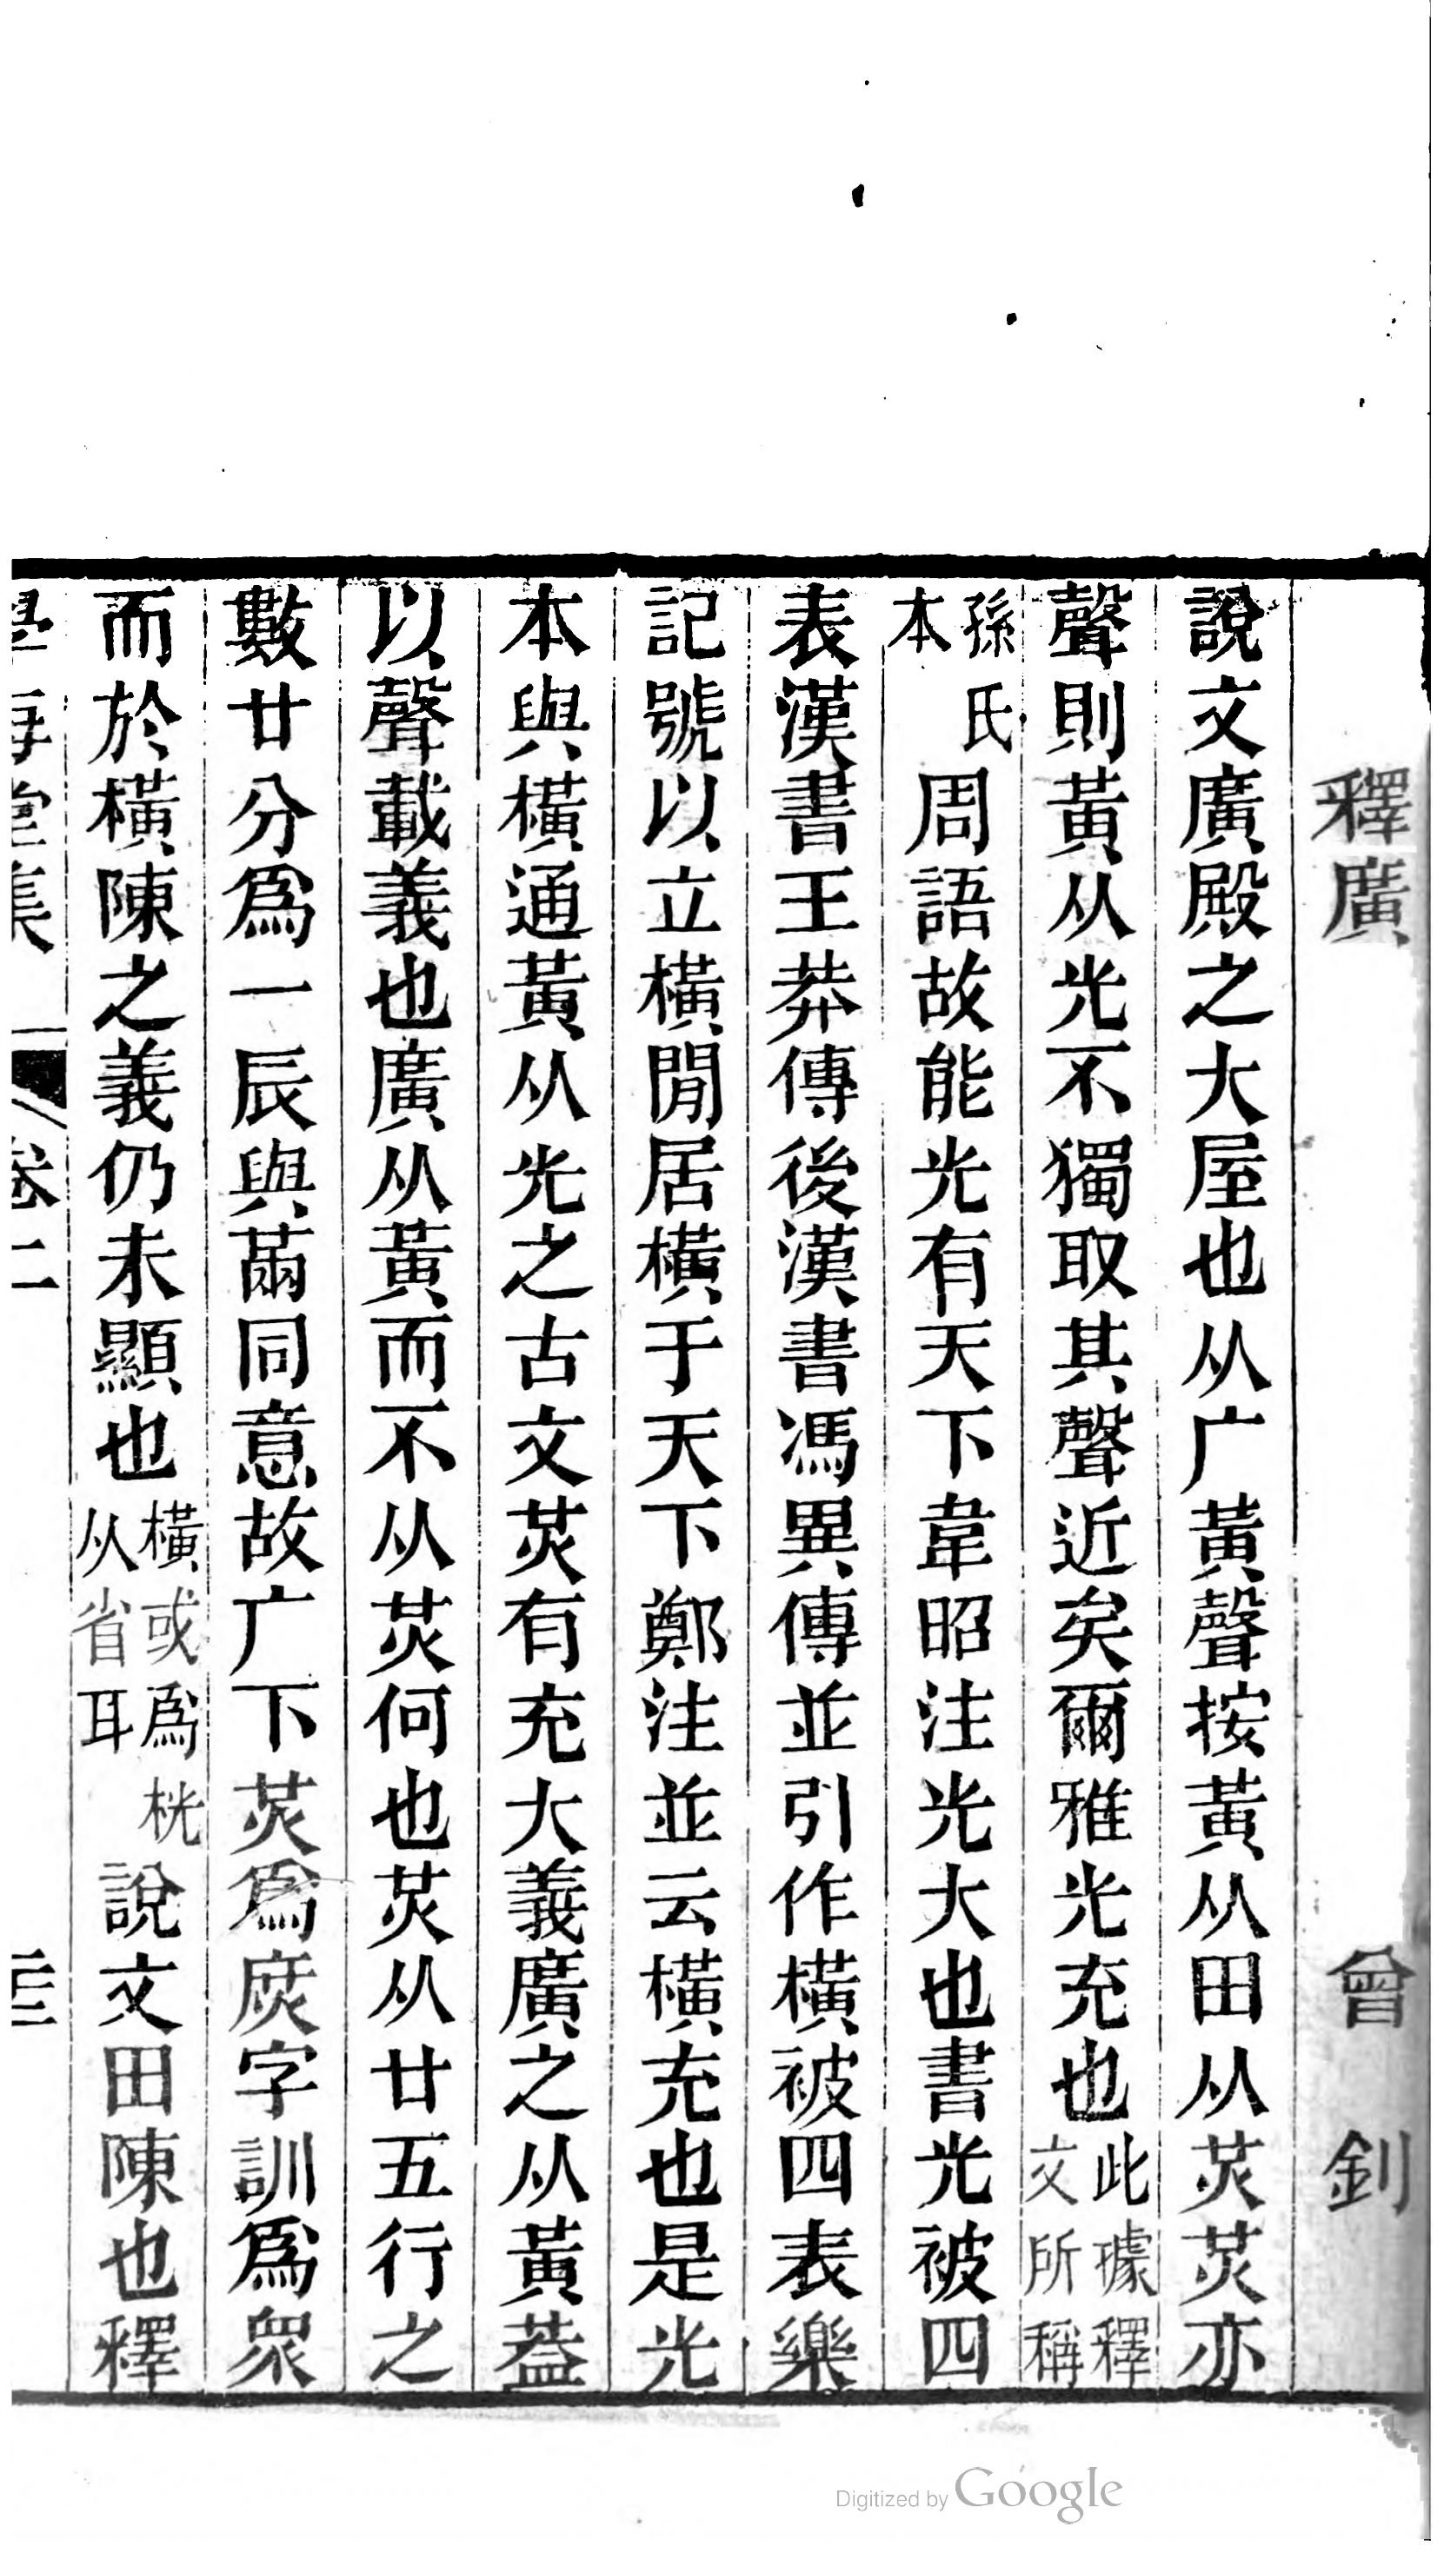 釋廣　　曾釗
說文廣殿之大屋也从广黃聲按黃从田从炗炗亦
聲則黃从光不獨取其聲近矣爾雅光充也此據釋文所稱
孫氏本周語故能光有天下韋昭注光大也書光被四
表漢書王莽傳後漢書馮異傳並引作橫被四表樂
記號以立橫閒居橫于天下鄭注並云橫充也是光
本與橫通黃从光之古文炗有充大義廣之从黃葢
以聲載義也廣从黃而不从炗何也炗从廿五行之
數廿分爲一辰與㒼同意故广下炗爲庶字訓爲眾
而於橫陳之義仍未顯也橫或爲桄从省耳說文田陳也釋
學海堂集　卷二
Digitized by Google